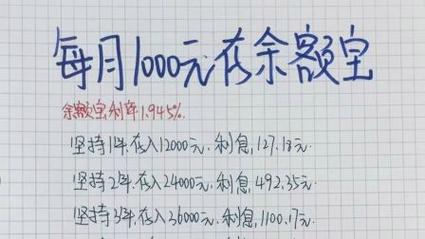 每月1000元存余额宝
余额宝利率1.945%.
坚持1年.存入12000元.利息,127.13元.
坚持2年.存入24000元.利息,492.35元.
坚持3年.存入36000元.利息,1100.17元.